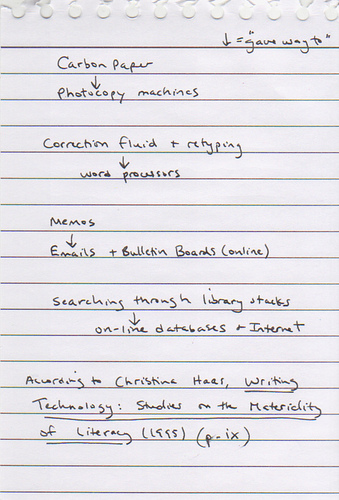 ↓ = "gave way to"
Carbon Paper
↓
Photocopy machines
Correction fluid + retyping
↓
word processors
Memos
↓
Emails + Bulletin Boards (online)
Searching through library stacks
↓
on-line databases + Internet
According to Christina Haas, Writing
Technology: Studies on the Materiality
of Literacy (1995) (p. ix)